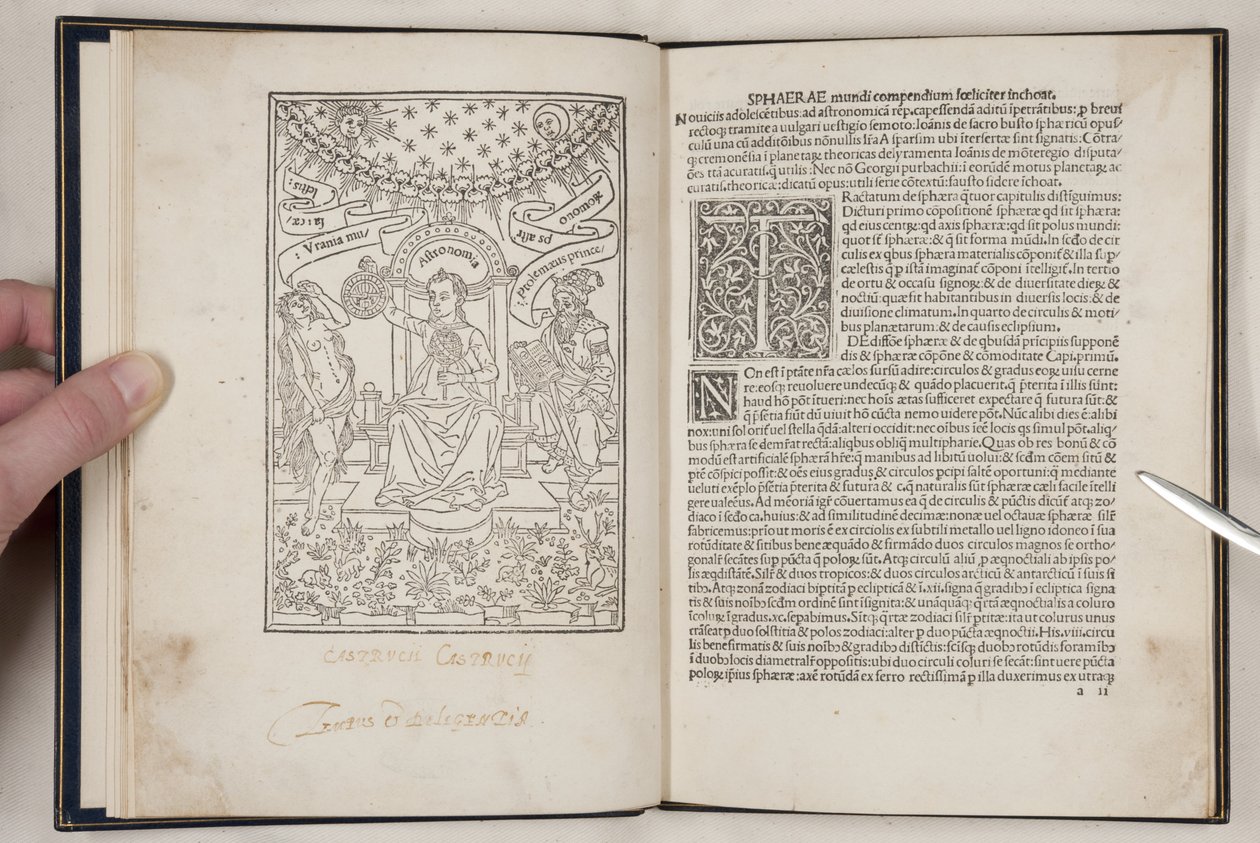 Vrania mu/
sa cæ/
lestis:
Astronomia
Ptolemæus prince/
ps astr
onomoꝝ
CASTRVCII CASTRVCII
SPHAERAE mundi compendium fœliciter inchoat.
Nouiciis adolescētibus: ad astronomicā rēp. capessendā aditū īpetrātibus: ꝓ breui
rectoqꝫ tramite a uulgari uestigio semoto: Ioānis de sacro busto sphæricū opus/
culū una cū additōibus nōnullis l̄ra A sparsim ubi ītersertæ sint signatis: Cōtra/
qꝫ cremonēsia ī planetaꝝ theoricas delyramenta Ioānis de mōteregio disputa/
ōes ttā acuratis. q̄ utilis: Nec nō Georgii purbachii: ī eorūdē motus planetaꝝ ac
curatis. theoricæ: dicatū opus: utili serie cōtextū: fausto sidere īchoat.
TRactatum de sphæra q̄tuor capitulis distīguimus:
Dicturi primo cōpositionē sphæræ qd sit sphæra:
qd eius centꝝ: qd axis sphæræ: qd sit polus mundi:
quot sn̄t sphæræ: & q̄ sit forma mūdi. In scd̄o de cir
culis ex qbus sphæra materialis cōponit̄ & illa sup
cælestis q̄ p istā imaginat̄ cōponi itelligit̄. In tertio
de ortu & occasu signoꝝ: & de diuersitate dieꝝ &
noctiū: quæ sit habitantibus in diuersis locis: & de
diuisione climatum. In quarto de circulis & moti/
bus planætarum: & de causis eclipsium.
DE diffōe sphæræ & de qbusdā prīcipiis supponē
dis & sphæræ cōpōne & cōmoditate Capi. primū.
NOn est ī ptāte nr̄a cælos sursū adire: circulos & gradus eoꝝ uisu cerne
re: eosqꝫ reuoluere undecūqꝫ & quādo placuerit. q̄ pterita ī illis sunt:
haud hō pōt ītueri: nec hoīs ætas sufficeret expectare q̄ futura sūt: &
q̄ psētia fiūt dū uiuit hō cūcta nemo uidere pōt. Nūc alibi dies ē: alibi
nox: uni sol orit̄ uel stella q̄dā: alteri occidit: nec oībus ieē locis qs simul pōt. aliq/
bus sphæra se demr̄at rectā: aliqbus obliq̄ multipharie. Quas ob res bonū & cō
modū est artificialē sphærā hr̄e: q̄ manibus ad libitū uolui: & scd̄m cōem sitū &
ptē cōspici possit: & oēs eius gradus & circulos pcipi saltē oportuni: q̄ mediante
ueluti exēplo psētia pterita & futura & c. q̄ naturali sūt sphæræ cæli facile itelli
gere ualeēus. Ad meōriā igr̄ cōuertamus ea q̄ de circulis & pūctis dicūt̄ atqꝫ zo/
diaco ī scd̄o ca. huius: & ad similitudinē decimæ: nonæ uel octauæ sphæræ silr̄
fabricemus: prīo ut moris ē ex circiolis ex subtili metallo uel ligno idoneo ī sua
rotūditate & sitibus bene æquādo & firmādo duos circulos magnos se ortho/
gonalr̄ secātes sup pūcta q̄ poloꝝ sūt. Atqꝫ circulū aliū p æqnoctiali ab ipsis po/
lis æqdistātē. Silr̄ & duos tropicos: & duos circulos arcticū & antarcticū ī suis si
tibꝰ. Atqꝫ zonā zodiaci biptitā p eclipticā & ī. xii. signa q̄ gradibꝰ ī ecliptica signa
tis & suis noībꝰ scd̄m ordinē sint īsignita: & unāquāqꝫ q̄rtā æqnoctialis a coluro
ī coluꝝ ī gradus. xc. sepabimus. Sītqꝫ q̄rtæ zodiaci silr̄ ptitæ: ita ut colurus unus
trāseat p duo solstitia & polos zodiaci: alter p duo pūcta æqnoctii. His. viii. circu
lis benefirmatis & suis noībꝰ & gradibꝰ distīctis: scīsqꝫ duobꝰ rotūdis foramībꝰ
ī duobꝰ locis diametralr̄ oppositis: ubi duo circuli coluri se secāt: sint uere pūcta
poloꝝ ipīus sphæræ: axē rotūdā ex ferro rectissimā p illa duxerimus ex utraqꝫ
a ii